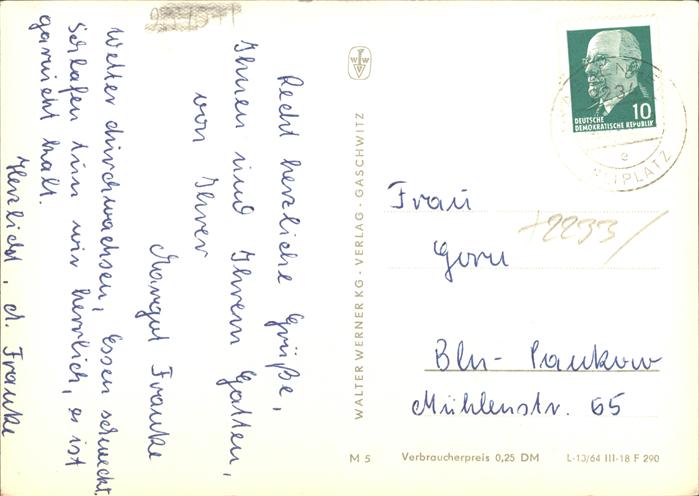 Recht herzliche Grüße,
Ihnen und Ihrem Gatten,
von Ihrer
Margut Franke
Wetter durchwachsen, Essen schmeckt.
Schlafen tun wir herrlich, es ist
garnicht kalt.
Herzlichst, M. Franke
WALTER WERNER KG · VERLAG · GASCHWITZ
WW
10
DEUTSCHE
DEMOKRATISCHE REPUBLIK
e
PLATZ
Frau
+2233/
Gorn
Bln-Pankow
Mühlenstr. 65
M 5 Verbraucherpreis 0,25 DM L-13/64 III-18 F 290